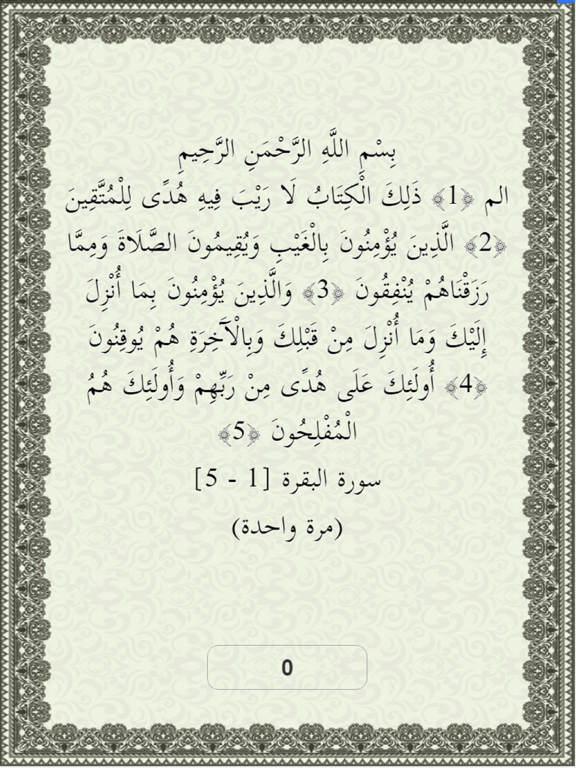 بِسْمِ اللَّهِ الرَّحْمَنِ الرَّحِيمِ
الم ﴿1﴾ ذَلِكَ الْكِتَابُ لَا رَيْبَ فِيهِ هُدًى لِلْمُتَّقِينَ
﴿2﴾ الَّذِينَ يُؤْمِنُونَ بِالْغَيْبِ وَيُقِيمُونَ الصَّلَاةَ وَمِمَّا
رَزَقْنَاهُمْ يُنْفِقُونَ ﴿3﴾ وَالَّذِينَ يُؤْمِنُونَ بِمَا أُنْزِلَ
إِلَيْكَ وَمَا أُنْزِلَ مِنْ قَبْلِكَ وَبِالْآخِرَةِ هُمْ يُوقِنُونَ
﴿4﴾ أُولَئِكَ عَلَى هُدًى مِنْ رَبِّهِمْ وَأُولَئِكَ هُمُ
الْمُفْلِحُونَ ﴿5﴾
سورة البقرة [1 - 5]
(مرة واحدة)
0